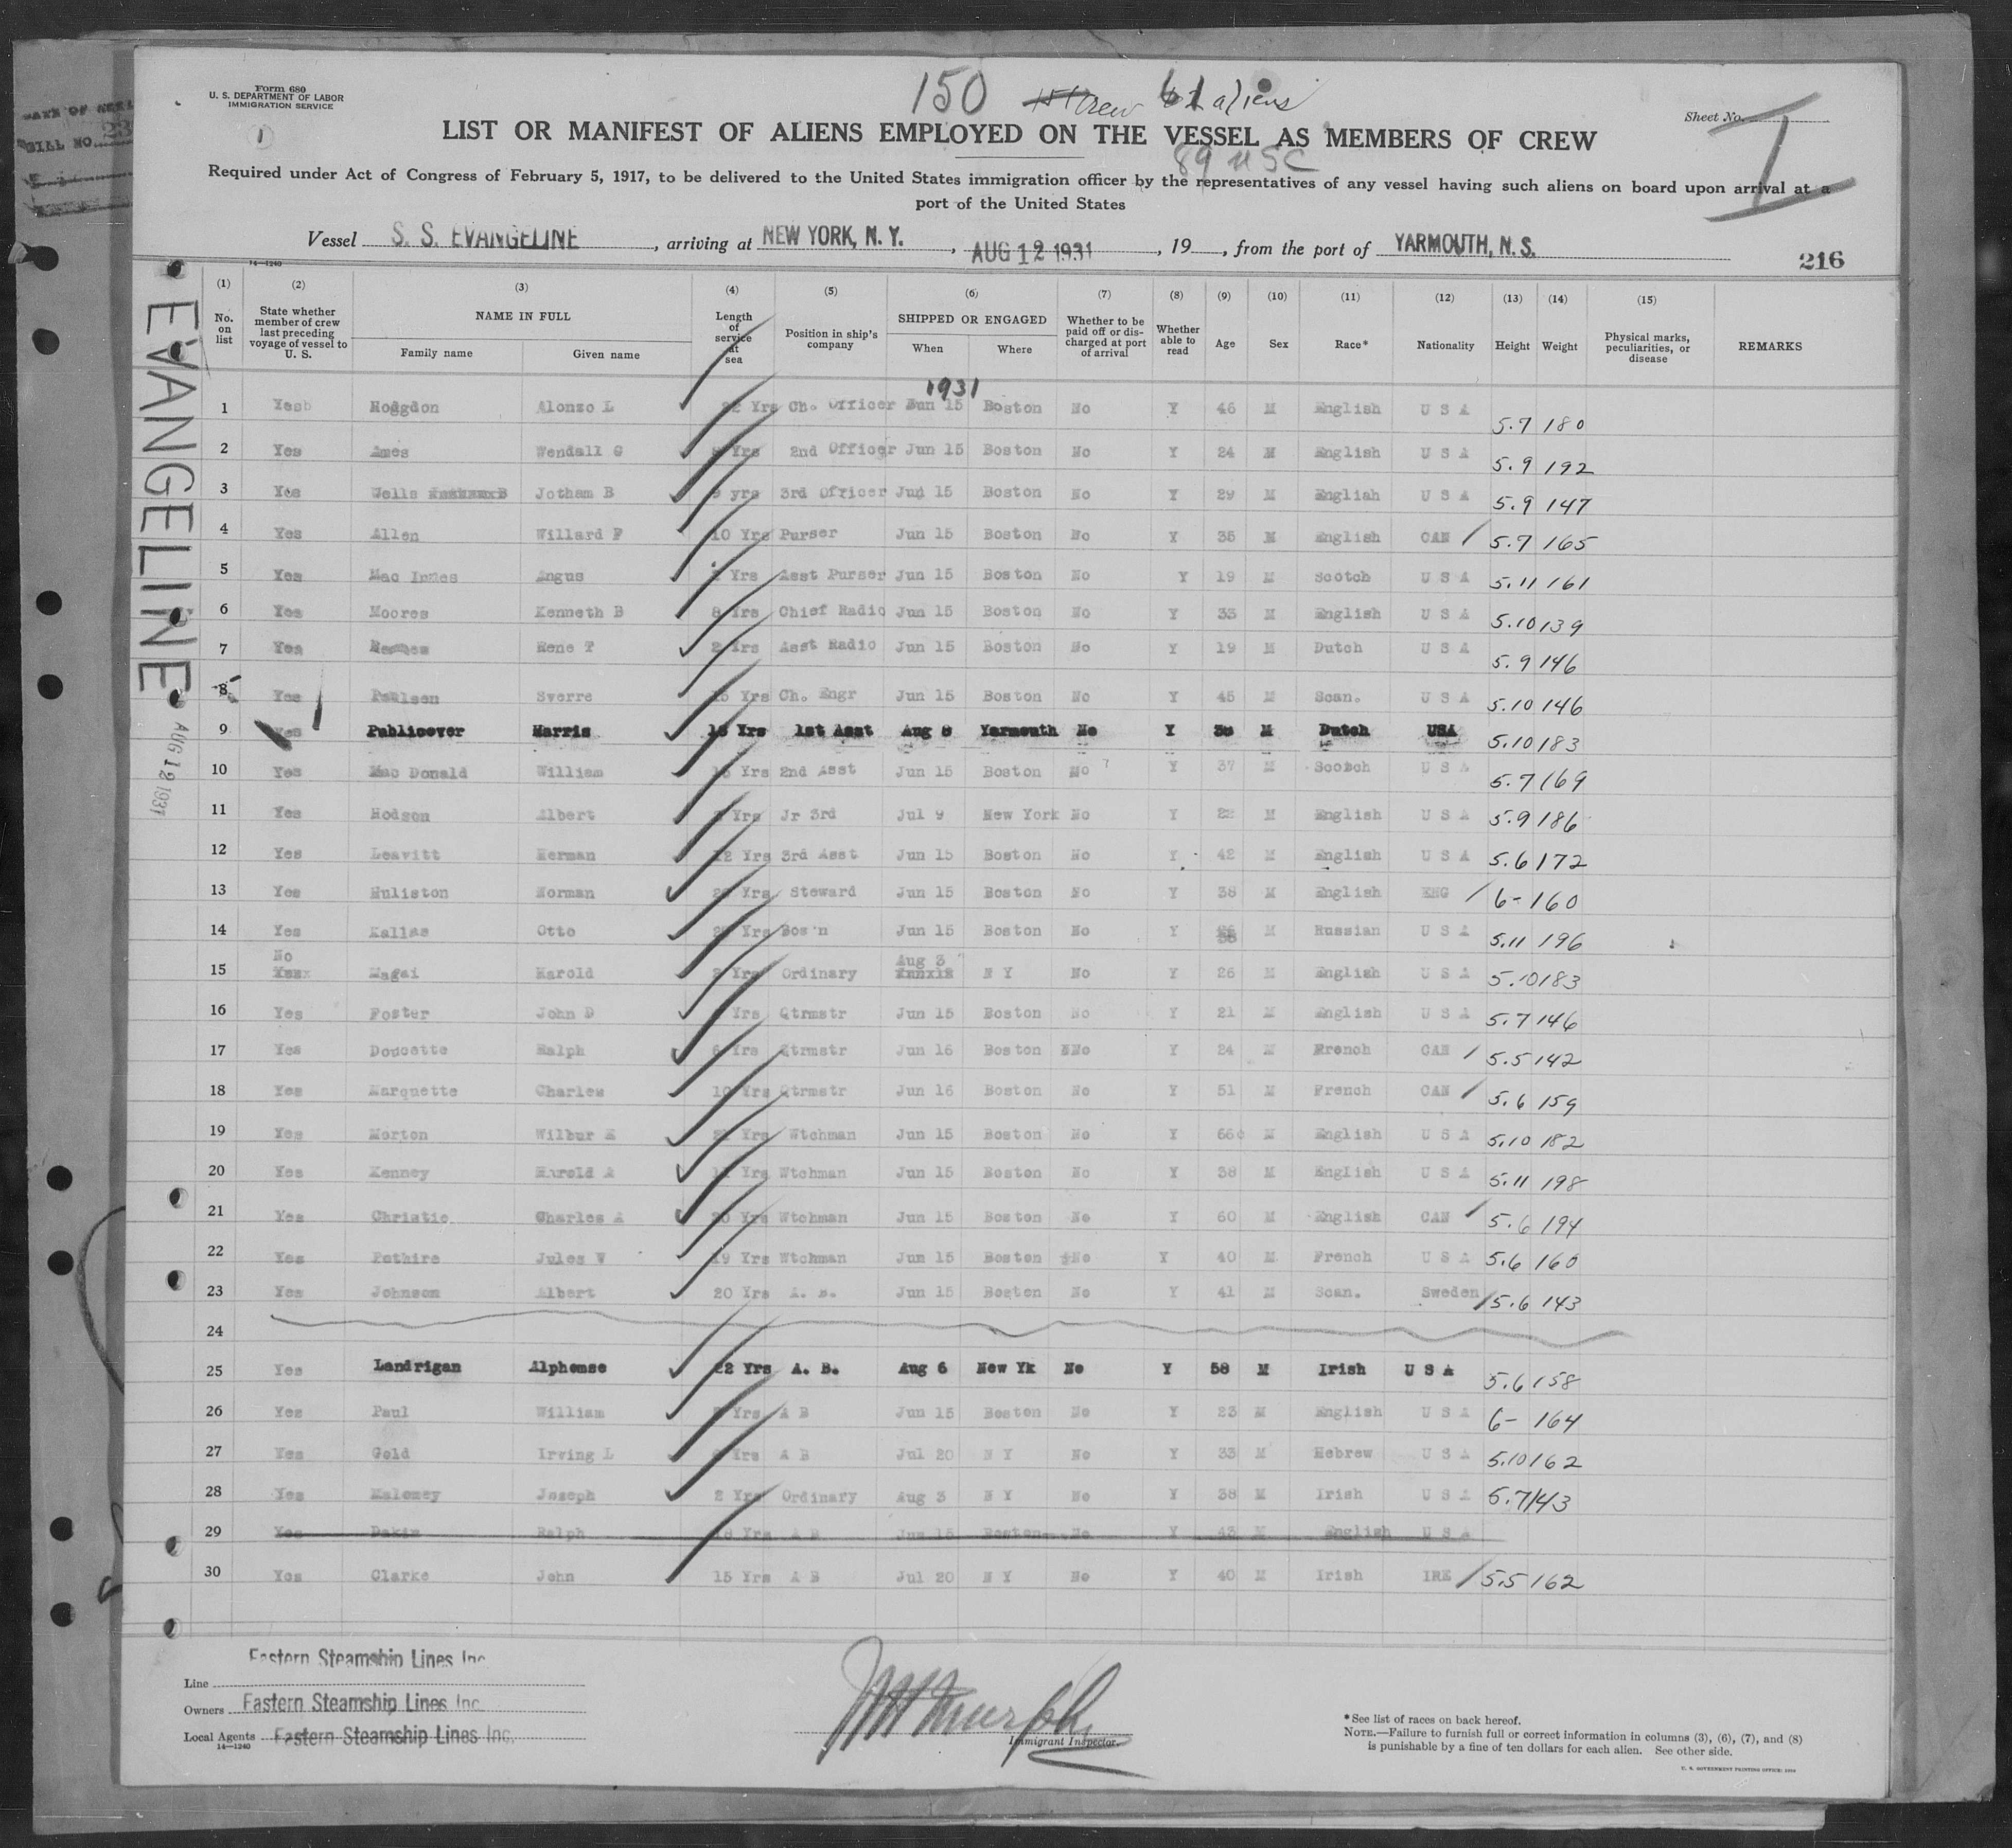 Form 680
U. S. DEPARTMENT OF LABOR
IMMIGRATION SERVICE
1
150 Crew 61 aliens
89 USC
Sheet No. I
LIST OR MANIFEST OF ALIENS EMPLOYED ON THE VESSEL AS MEMBERS OF CREW
Required under Act of Congress of February 5, 1917, to be delivered to the United States immigration officer by the representatives of any vessel having such aliens on board upon arrival at a
port of the United States
Vessel S. S. EVANGELINE, arriving at NEW YORK, N. Y., AUG 12 1931, 19, from the port of YARMOUTH, N. S.
216
14—1240
EVANGELINE
AUG 12 1931
(1) (2) (3) (4) (5) (6) (7) (8) (9) (10) (11) (12) (13) (14) (15)
No. on list
State whether member of crew last preceding voyage of vessel to U. S.
NAME IN FULL
Family name
Given name
Length of service at sea
Position in ship's company
SHIPPED OR ENGAGED
When
Where
Whether to be paid off or discharged at port of arrival
Whether able to read
Age
Sex
Race*
Nationality
Height
Weight
Physical marks, peculiarities, or disease
REMARKS
1931
1 Yes Hodgdon Alonzo L Yrs Ch. Officer Jun 15 Boston No Y 46 M English U S A 5.7 180
2 Yes Ames Wendall G Yrs 2nd Officer Jun 15 Boston No Y 24 M English U S A 5.9 192
3 Yes Wells Jotham B yrs 3rd Officer Jun 15 Boston No Y 29 M English U S A 5.9 147
4 Yes Allen Willard F 10 Yrs Purser Jun 15 Boston No Y 35 M English CAN 5.7 165
5 Yes Mac Innes Angus Yrs Asst Purser Jun 15 Boston No Y 19 M Scotch U S A 5.11 161
6 Yes Moores Kenneth B 8 Yrs Chief Radio Jun 15 Boston No Y 33 M English U S A 5.10 139
7 Yes Rene T 2 Yrs Asst Radio Jun 15 Boston No Y 19 M Dutch U S A 5.9 146
8 Yes Paulsen Sverre 15 Yrs Ch. Engr Jun 15 Boston No Y 45 M Scan. U S A 5.10 146
9 Yes Publicover Harris Yrs 1st Asst Aug 8 Yarmouth No Y M Dutch USA 5.10 183
10 Yes Mac Donald William Yrs 2nd Asst Jun 15 Boston No Y 37 M Scotch U S A 5.7 169
11 Yes Hodgson Albert Yrs Jr 3rd Jul 9 New York No Y 22 M English U S A 5.9 186
12 Yes Leavitt Herman 12 Yrs 3rd Asst Jun 15 Boston No Y 42 M English U S A 5.6 172
13 Yes Huliston Norman Yrs Steward Jun 15 Boston No Y 38 M English ENG 6- 160
14 Yes Kallas Otto Yrs Bos'n Jun 15 Boston No Y M Russian U S A 5.11 196
No Aug 3
15 Magai Harold Yrs Ordinary N Y No Y 26 M English U S A 5.10 183
16 Yes Foster John D Yrs Qtrmstr Jun 15 Boston No Y 21 M English U S A 5.7 146
17 Yes Doucette Ralph 6 Yrs Qtrmstr Jun 16 Boston No Y 24 M French CAN 5.5 142
18 Yes Marquette Charles 10 Yrs Qtrmstr Jun 16 Boston No Y 51 M French CAN 5.6 159
19 Yes Morton Wilbur E Yrs Wtchman Jun 15 Boston No Y 66 M English U S A 5.10 182
20 Yes Kenney Harold A Yrs Wtchman Jun 15 Boston No Y 38 M English U S A 5.11 198
21 Yes Christie Charles A 20 Yrs Wtchman Jun 15 Boston No Y 60 M English CAN 5.6 194
22 Yes Pothire Jules W 19 Yrs Wtchman Jun 15 Boston No Y 40 M French U S A 5.6 160
23 Yes Johnson Albert 20 Yrs A. B. Jun 15 Boston No Y 41 M Scan. Sweden 5.6 143
24
25 Yes Landrigan Alphonse 22 Yrs A. B. Aug 6 New Yk No Y 58 M Irish U S A 5.6 158
26 Yes Paul William Yrs A B Jun 15 Boston No Y 23 M English U S A 6- 164
27 Yes Gold Irving L Yrs A B Jul 20 N Y No Y 33 M Hebrew U S A 5.10 162
28 Yes Maloney Joseph 2 Yrs Ordinary Aug 3 N Y No Y 38 M Irish U S A 5.7 143
29 Yes Dakin Ralph 18 Yrs A B Jun 15 Boston No Y 43 M English U S A
30 Yes Clarke John 15 Yrs A B Jul 20 N Y No Y 40 M Irish IRE 5.5 162
Eastern Steamship Lines Inc
Line
Owners Eastern Steamship Lines Inc.
Local Agents Eastern Steamship Lines Inc.
14—1240
Murphy
Immigrant Inspector.
*See list of races on back hereof.
NOTE.—Failure to furnish full or correct information in columns (3), (6), (7), and (8)
is punishable by a fine of ten dollars for each alien. See other side.
U. S. GOVERNMENT PRINTING OFFICE